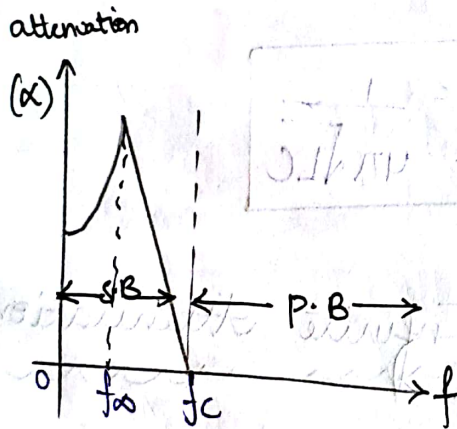 attenuation
(α)
S.B
P.B
0
f∞
fc
f